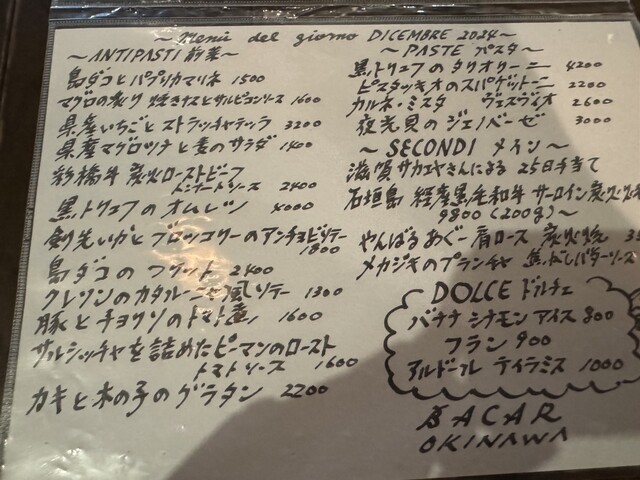 ~ Menù del giorno DICEMBRE 2024 ~
~ ANTIPASTI 前菜 ~
島ダコとパプリカマリネ 1500
マグロの炙り 焼きナスとサルピコンソース 1600
県産いちごとストラッチャテッラ 3200
県産マグロッソと麦のサラダ 1400
牛 炭火ローストビーフ
トンナートソース 2400
黒トリュフのオムレツ 4000
剣先いかとブロッコリーのアンチョビソテー
1800
島ダコのフリット 2400
クレソンのカタルーニャ風ソテー 1300
豚とチョリソのトマト煮 1600
サルシッチャを詰めたピーマンのロースト
トマトソース 1600
カキと木の子のグラタン 2200
~ PASTE パスタ ~
黒トリュフのタリオリーニ 4200
ピスタッキオのスパゲットーニ 2200
カルネ・ミスタ ヴェズヴィオ 2600
夜光貝のジェノベーゼ 3000
~ SECONDI メイン ~
滋賀 サカエヤさんによる 25日手当て
石垣島 経産黒毛和牛 サーロイン炭火焼
9800 (200g) ~
やんばるあぐー肩ロース 炭火焼
メカジキのプランチャ 焦がしバターソース
DOLCE ドルチェ
バナナ シナモン アイス 800
フラン 900
アルドール ティラミス 1000
BACAR
OKINAWA